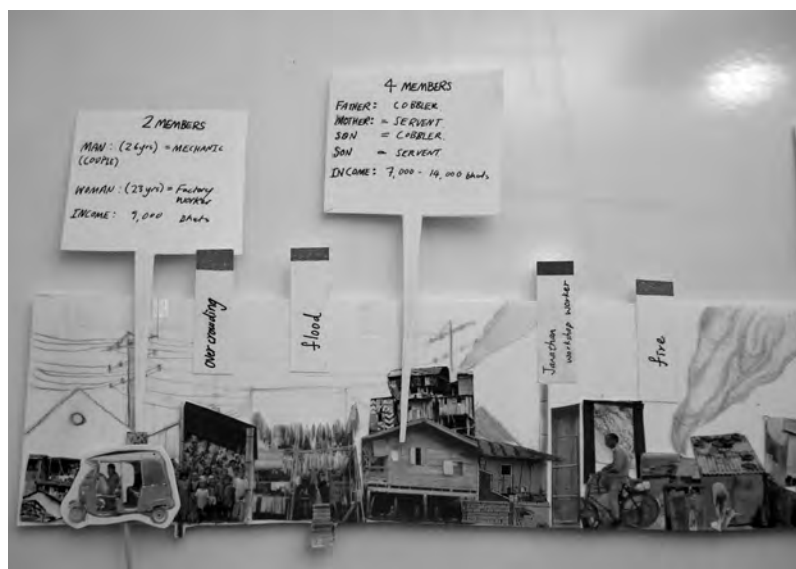 2 MEMBERS
MAN: (26yrs) = MECHANIC
(COUPLE)
WOMAN: (23yrs) = Factory
worker
INCOME: 9,000 bhats
4 MEMBERS
FATHER: COBBLER
MOTHER: = SERVENT
SON = COBBLER.
SON = SERVENT
INCOME: 7,000 - 14,000 bhats
overcrowding
flood
Jonathan
workshop worker
fire